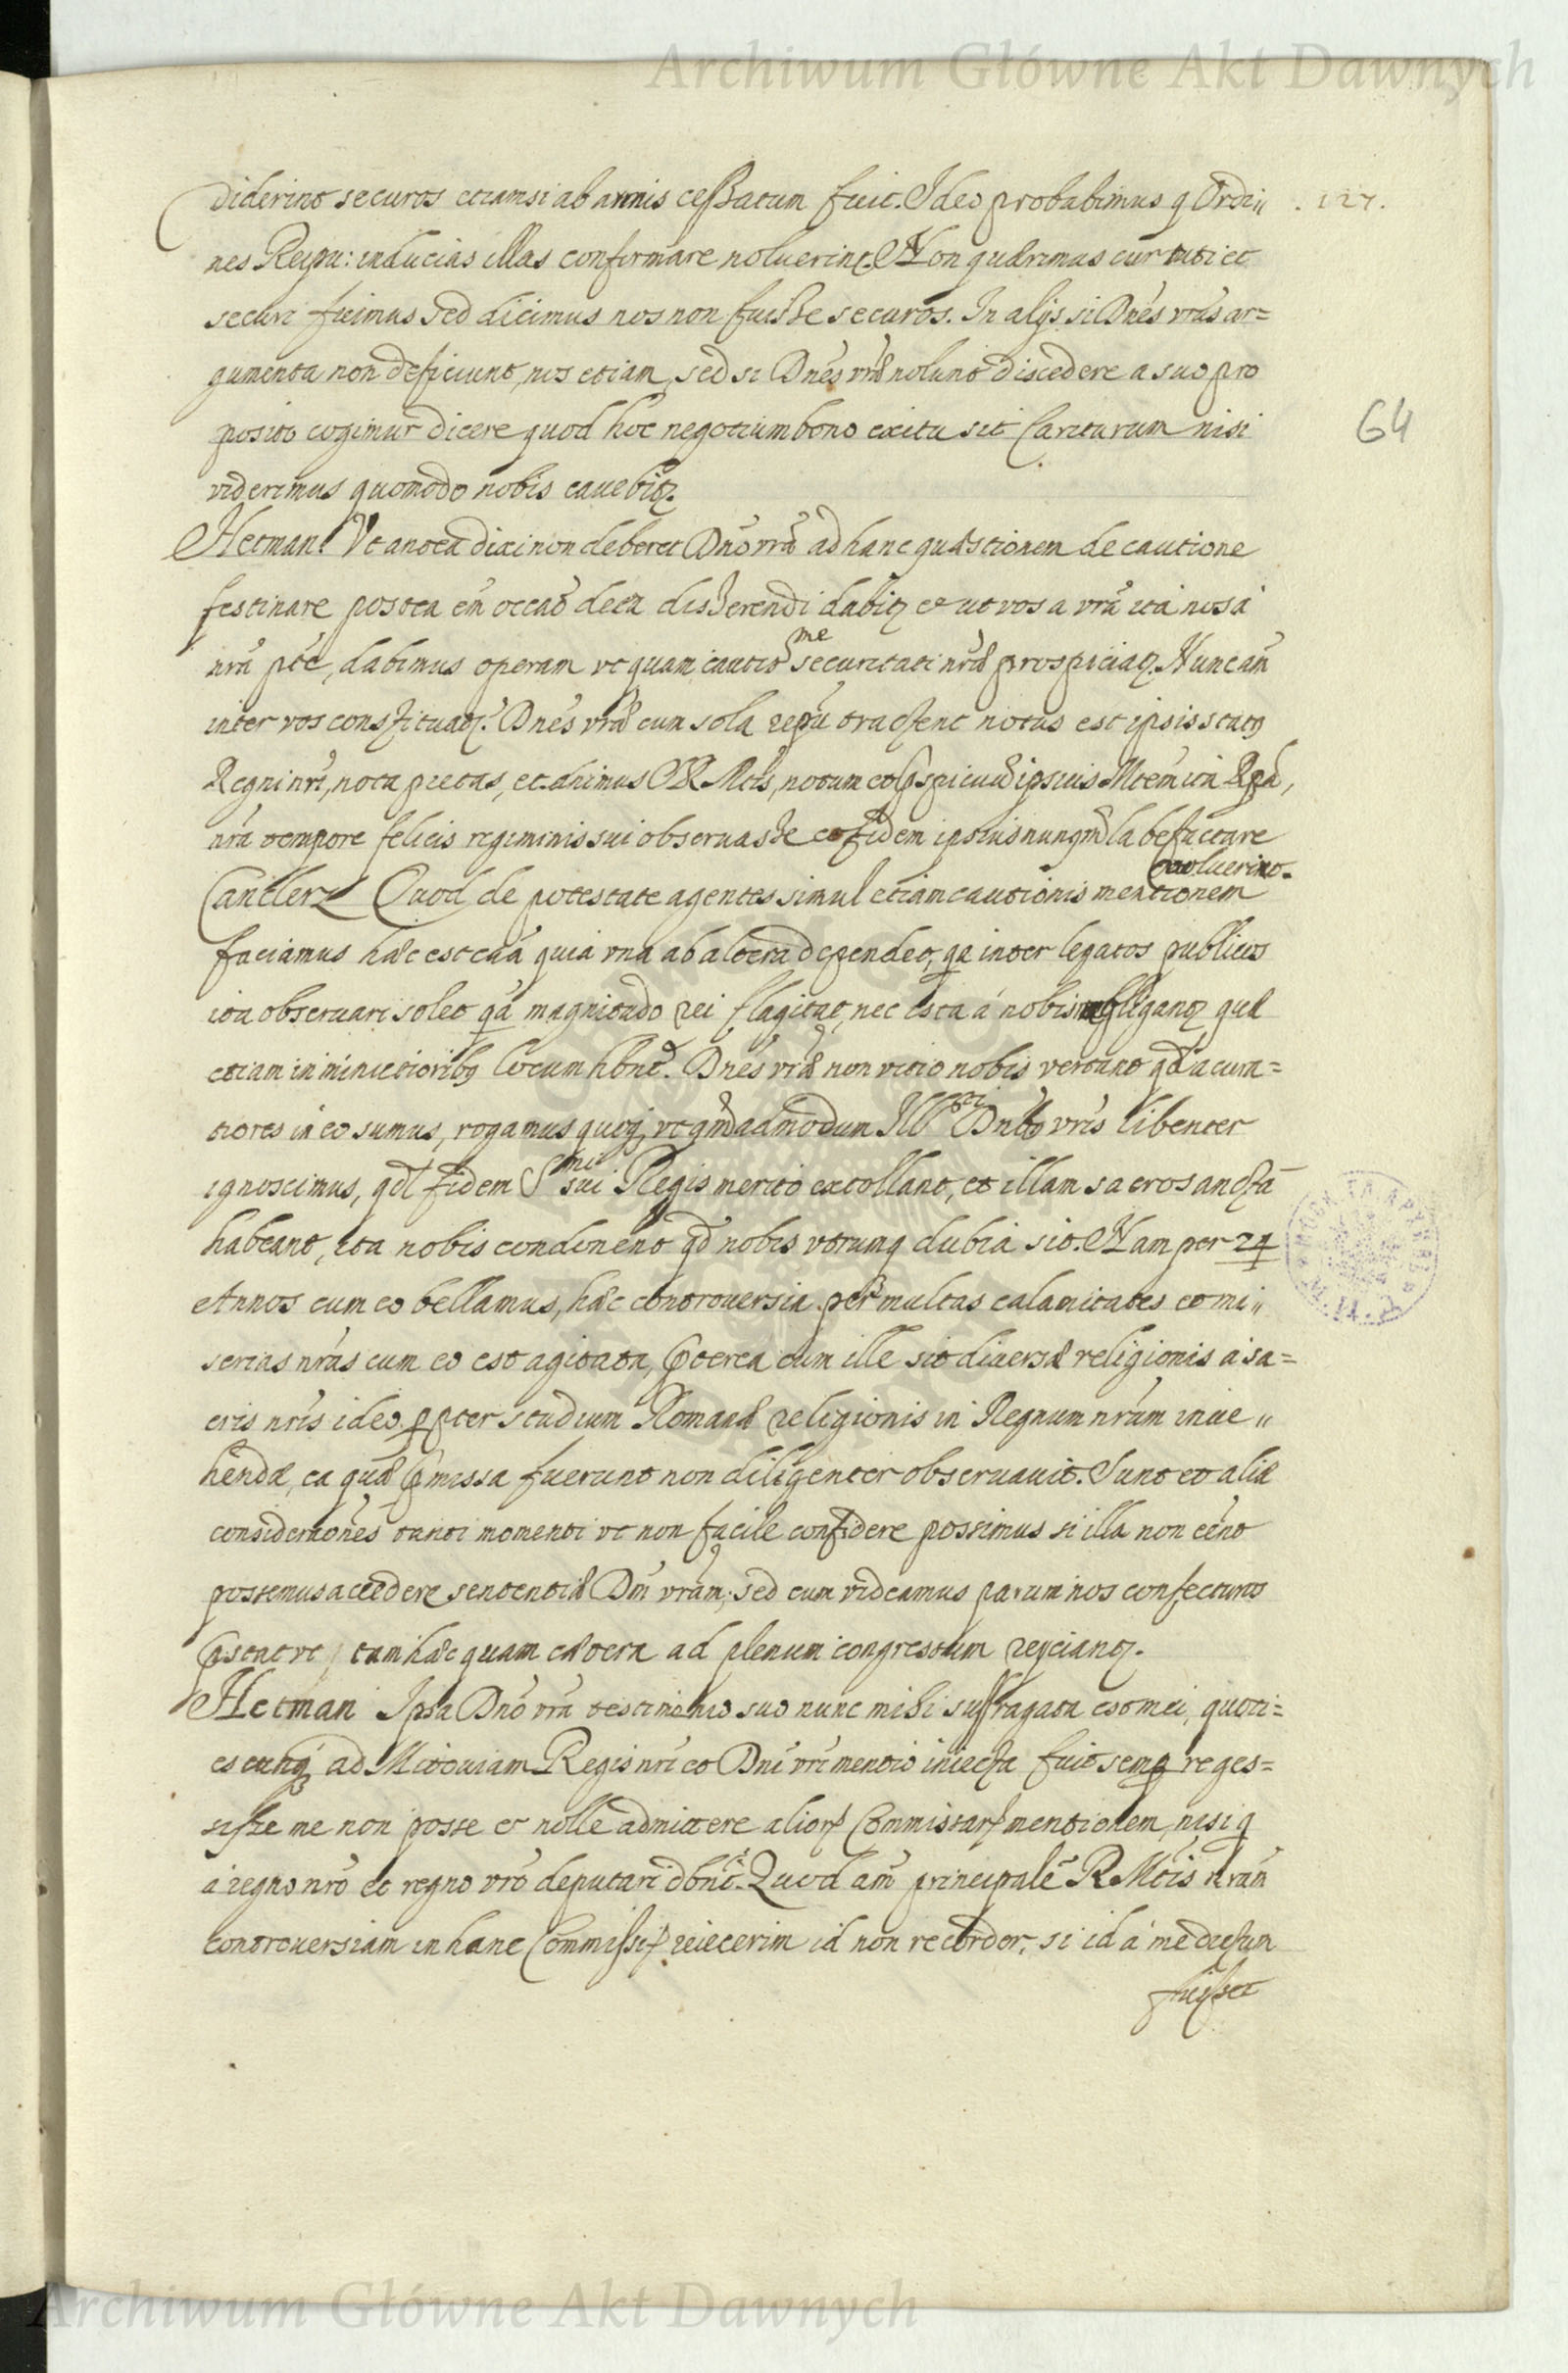 Archiwum Główne Akt Dawnych
diderint securos etiamsi ab armis cessatum fuit. Ideo probabimus q Ordi〃 . 127.
nes Reipu: inducias illas confirmare noluerint. Non quærimus cur tuti et
securi fuimus sed dicimus nos non fuisse securos. In alijs si Dnēs vrās ar=
gumenta non deficiunt, nos etiam, sed si Dnēs vræ nolunt discedere a suo pro
posito cogimur dicere quod hoc negotium bono exitu sit Cariturum nisi
64
viderimus quomodo nobis cavebitꝫ.
Hetman. Vt antea dixi non deberet Dnō vrā ad hanc quæstionem de cautione
festinare postea em̄ occaō de ea disserendi dabitꝫ et ut vos a vrā ita nos a
nrā pte, dabimus operam vt quam cautissᵐᵉ securitati nræ prospiciatꝫ. Nunc aūt
inter vos constituatꝫ. Dnēs vræ cum sola repu tractent notus est ipsis status
Regni nri, nota pietas, et animus SR Mtis, notum et pspicuū ipsius Mtem ita Rpā,
nrā tempore felicis regiminis sui observasse et fidem ipsius nunqm̄ labefactare
voluerint.
Cantlerz Quod de potestate agentes simul etiam cautionis mentionem
faciamus hæc est caā quia una ab altera dependet, qa inter legatos publicos
ita observari solet qā magnitudo rei flagitat, nec ista à nobis negliganꝫ quæ
etiam in minutioribꝫ locum hbnt. Dnēs vræ non vitio nobis vertant qd acura=
tiores in eo sumus, rogamus quoqꝫ vt qmadmodum Illᵐⁱˢ Dnībꝫ vris libenter
ignoscimus, qd fidem Sᵐⁱ sui Regis merito extollant, et illam sacrosanctā
habeant, ita nobis condonent qd nobis utrumq dubia sit. Nam per 24
Annos cum eo bellamus, hæc controversia per multas calamitates et mi〃
serias nrās cum eo est agitata, Pterea cum ille sit diversæ religionis a sa=
cris nris ideo ppter studium Romanæ religionis in Regnum nrūm inve〃
hendæ, ea quæ pmissa fuerunt non diligenter observavit. Sunt et aliæ
considerationes tanti momenti vt non facile confidere possimus si illa non eēnt
possemus accedere sententiæ Dm̄ vrām; sed cum videamus parum nos confecturos
pstat vt tam hæc quam cætera ad plenum congressum reijcianꝫ.
Hetman Ipsa Dnō vrā testimonio suo nunc mihi suffragata est mei, quoti=
escunqꝫ ad Mitoviam Regis nri et Dni vri mentio iniecta fuit semp reges=
sisse me non posse et nolle admittere aliorꝫ Commissarꝫ mentionem, nisi q
à regno nrō et regno vrō deputari dbnt. Quod am̄ principalē R Mtis nrām
controversiam in hanc Commissiꝫ reiecerim id non recordor, si id à me dictum
fuisset
Archiwum Główne Akt Dawnych